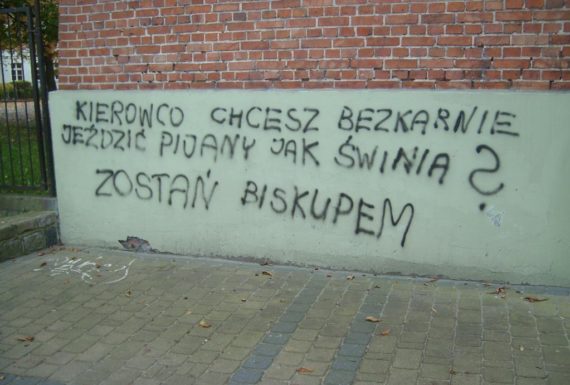 KIEROWCO CHCESZ BEZKARNIE
JEŹDZIĆ PIJANY JAK ŚWINIA ?
ZOSTAŃ BISKUPEM